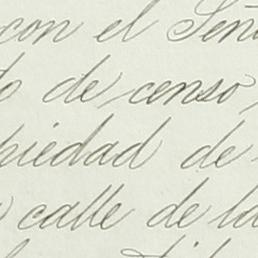 con el Seño
o de censo
piedad de
calle de la